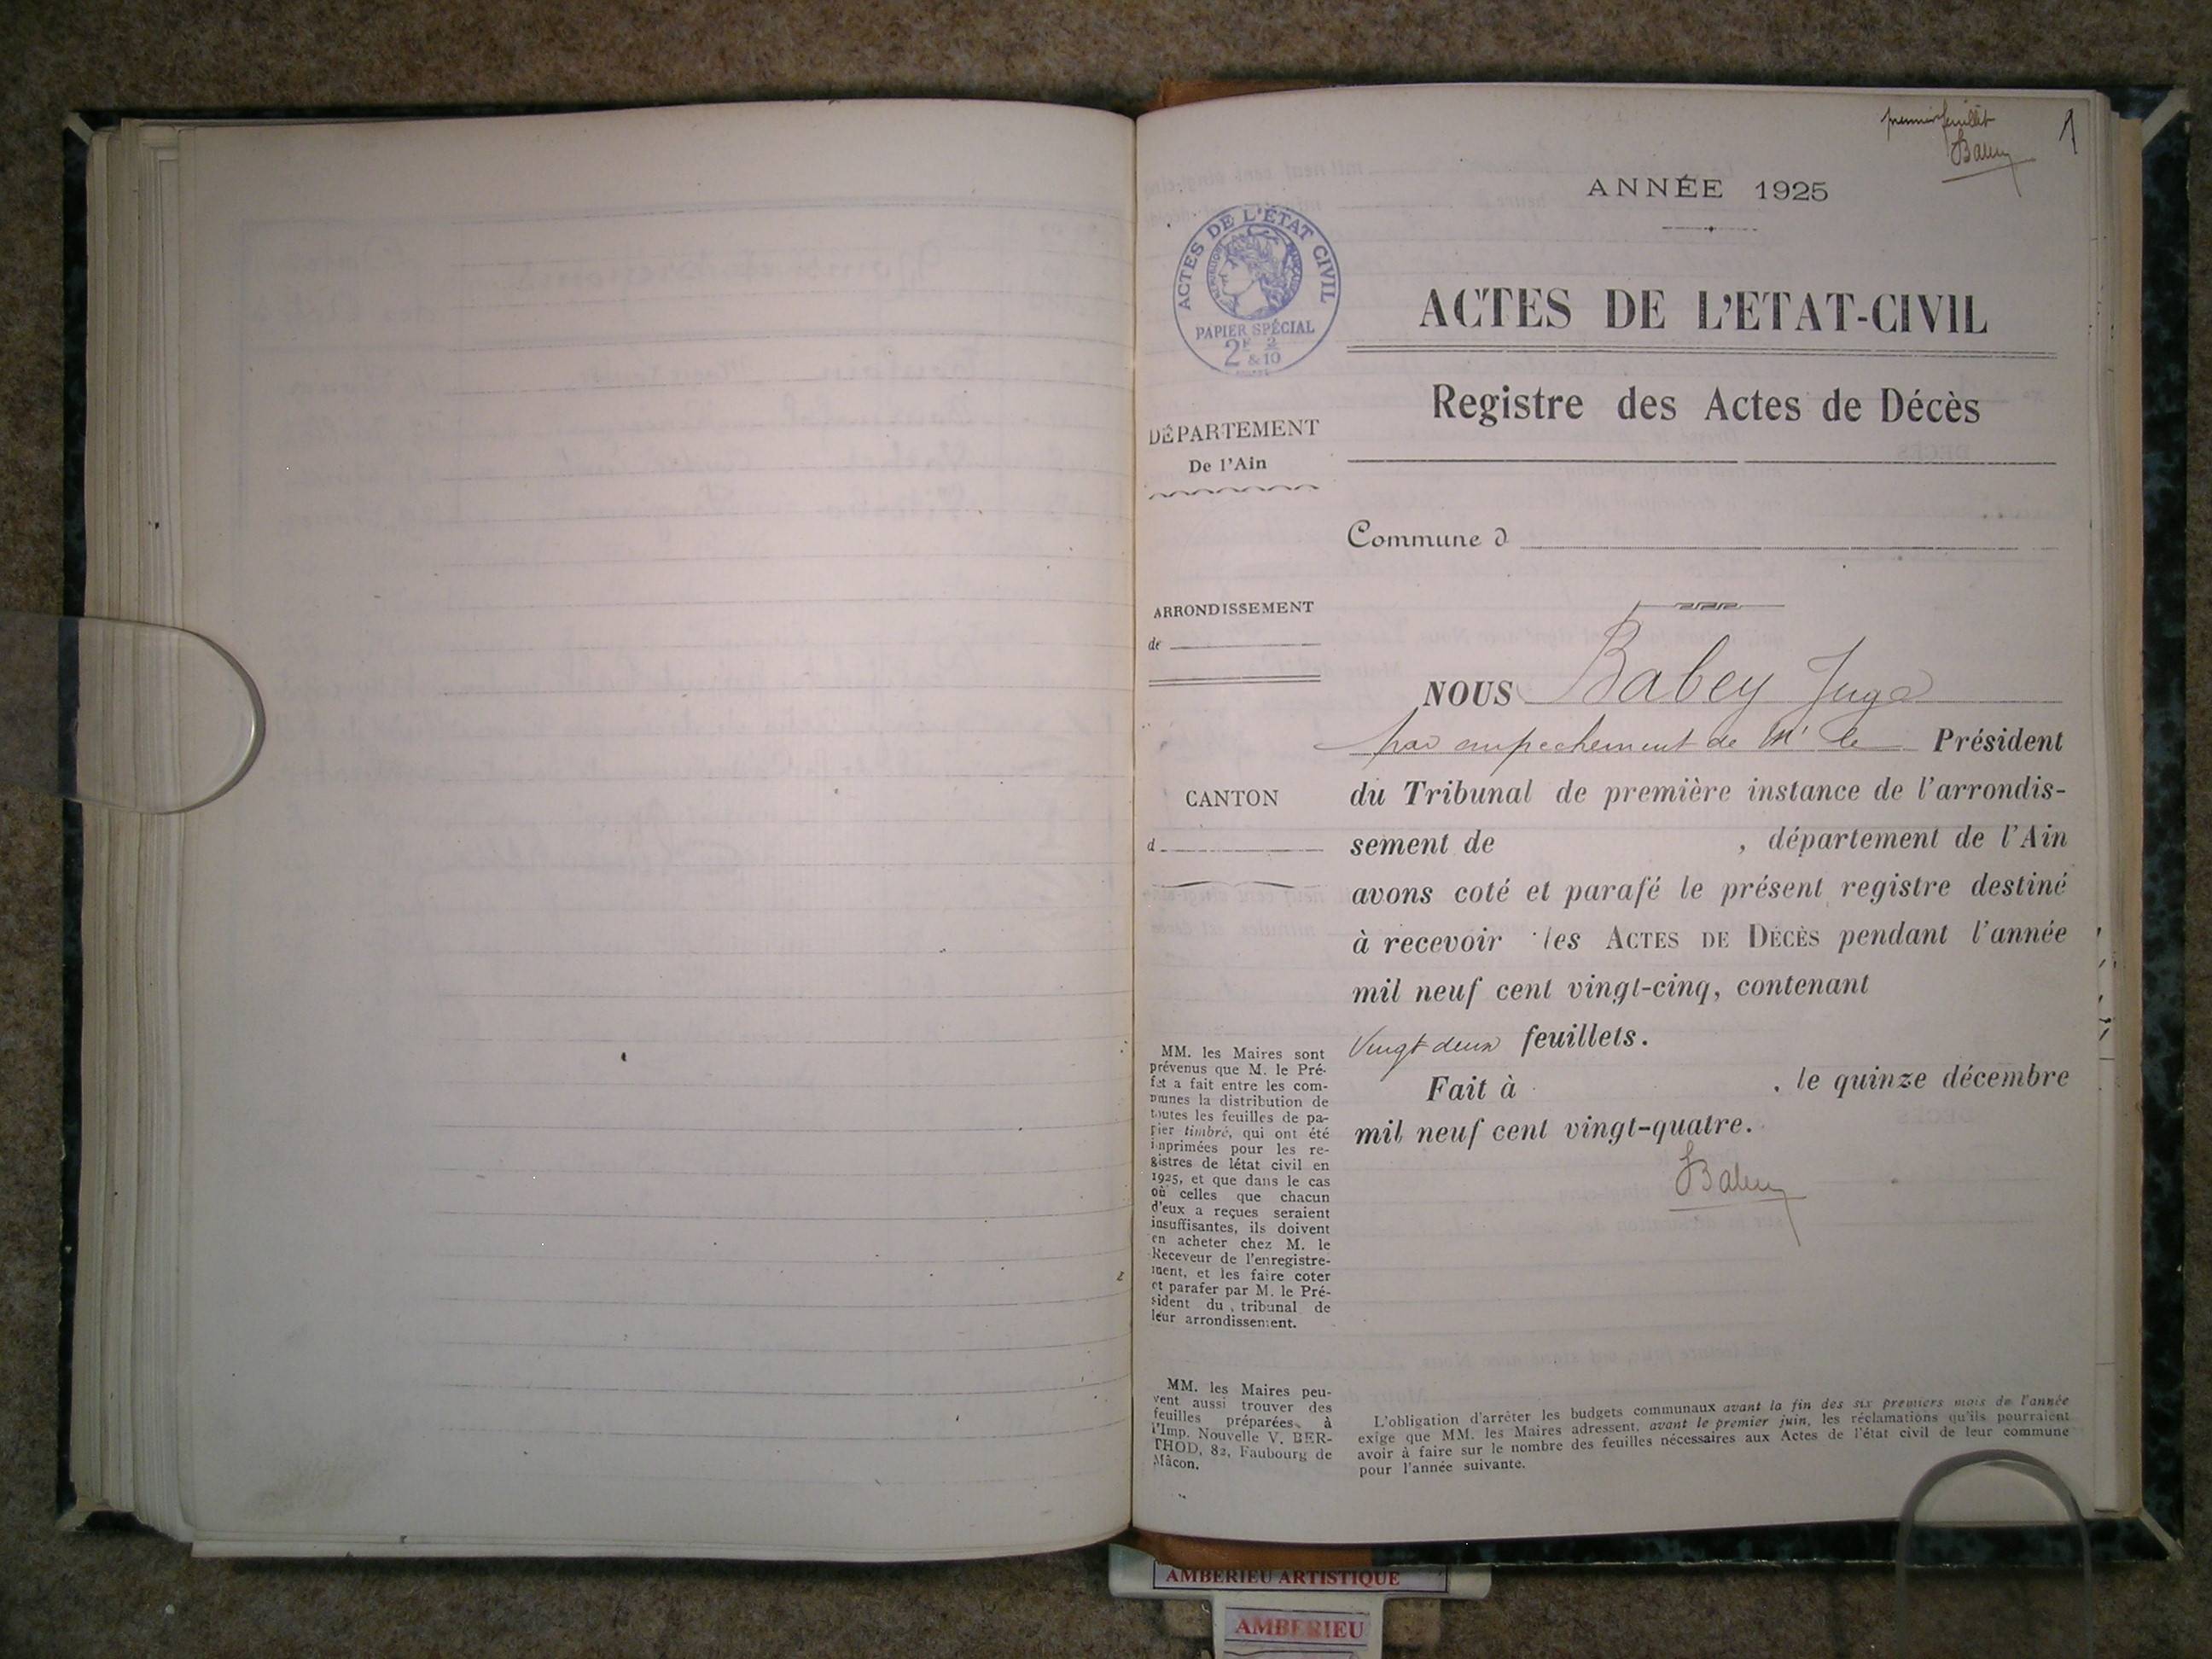 premier feuillet
Babey
1
ANNÉE 1925
ACTES DE L'ÉTAT CIVIL
RÉPUBLIQUE FRANÇAISE
PAPIER SPÉCIAL
2F 2
& 10
ACTES DE L'ETAT-CIVIL
Registre des Actes de Décès
DÉPARTEMENT
De l'Ain
Commune d
ARRONDISSEMENT
de
CANTON
d
NOUS Babey Juge
par empechement de Mr le Président
du Tribunal de première instance de l'arrondis-
sement de , département de l'Ain
avons coté et parafé le présent registre destiné
à recevoir les ACTES DE DÉCÈS pendant l'année
mil neuf cent vingt-cinq, contenant
Vingt deux feuillets.
Fait à , le quinze décembre
mil neuf cent vingt-quatre.
Babey
MM. les Maires sont
prévenus que M. le Pré-
fet a fait entre les com-
munes la distribution de
toutes les feuilles de pa-
pier timbré, qui ont été
imprimées pour les re-
gistres de létat civil en
1925, et que dans le cas
où celles que chacun
d'eux a reçues seraient
insuffisantes, ils doivent
en acheter chez M. le
Receveur de l'enregistre-
ment, et les faire coter
et parafer par M. le Pré-
sident du tribunal de
leur arrondissement.
MM. les Maires peu-
vent aussi trouver des
feuilles préparées à
l'Imp. Nouvelle V. BER-
THOD, 82, Faubourg de
Mâcon.
L'obligation d'arrêter les budgets communaux avant la fin des six premiers mois de l'année
exige que MM. les Maires adressent, avant le premier juin, les réclamations qu'ils pourraient
avoir à faire sur le nombre des feuilles nécessaires aux Actes de l'état civil de leur commune
pour l'année suivante.
AMBERIEU ARTISTIQUE
AMBERIEU